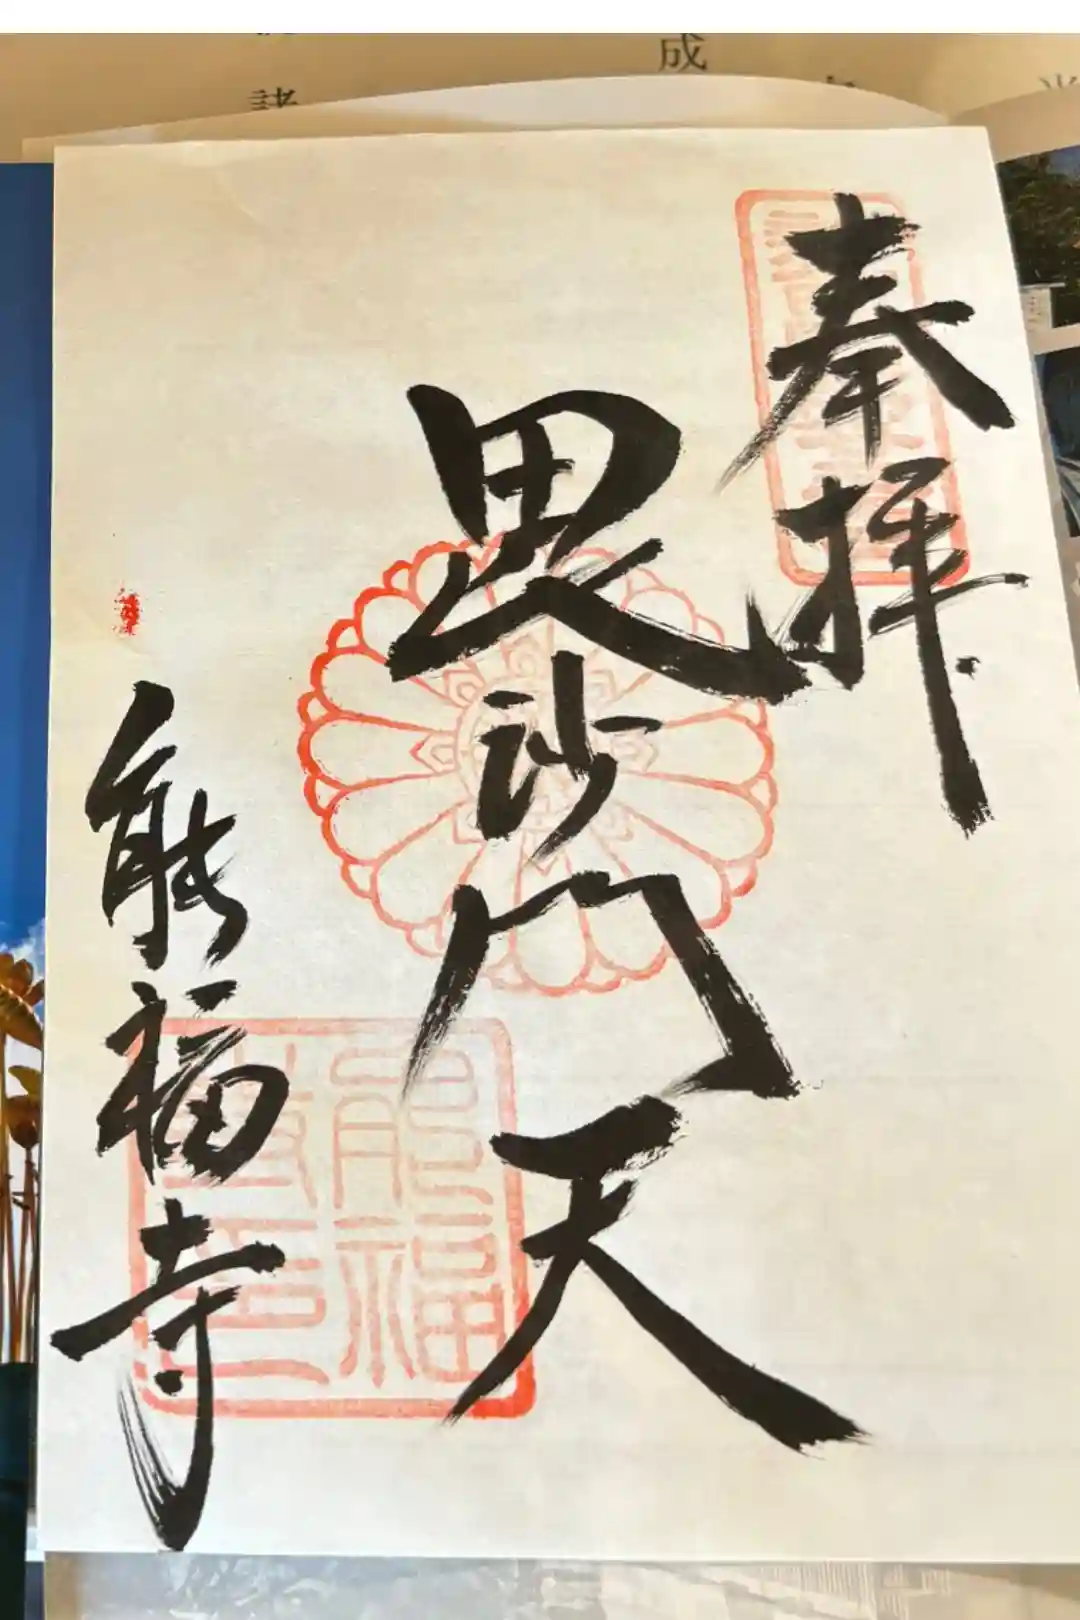 奉拝
毘沙門天
能福寺
能福
寺印
成
諸